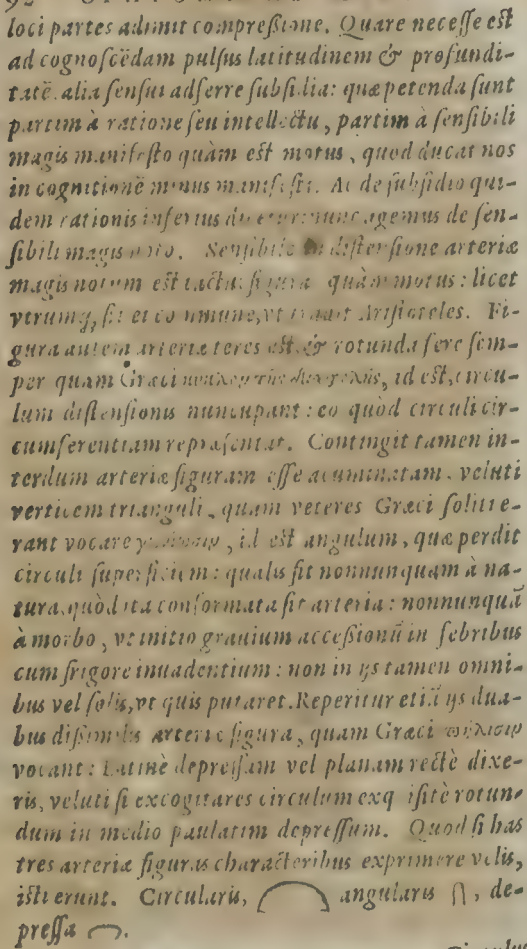 loci partes adimit compreßione. Quare neceſſe eſt
ad cognoſcẽdam pulſus latitudinem & profundi-
tatẽ alia ſenſui adferre ſubſidia: quæ petenda ſunt
partim à ratione ſeu intellectu, partim à ſenſibili
magis manifeſto quàm eſt motus, quod ducat nos
in cognitionẽ minus manifeſti. Ac de ſubſidio qui-
dem rationis inferius nunc agemus de ſen-
ſibili magis noto. Senſibile in diſtenſione arteriæ
magis notum eſt tactui figura quàm motus: licet
vtrumq; ſit ei commune, vt tradit Ariſtoteles. Fi-
gura autem arteriæ teres eſt & rotunda fere ſem-
per quam Græci id eſt, circu-
lum diſtenſionis nuncupant: eo quòd circuli cir-
cumferentiam repræſentat. Contingit tamen in-
terdum arteriæ figuram eſſe acuminatam, veluti
verticem trianguli, quam veteres Græci ſoliti e-
rant vocare , id eſt angulum, quæ perdit
circuli ſuperficiem: qualis fit nonnunquam à na-
tura, quòd ita conformata ſit arteria: nonnunquã
à morbo, vt initio grauium acceßionũ in febribus
cum frigore inuadentium: non in ijs tamen omni-
bus vel ſolis, vt quis putaret. Reperitur etiã ijs dua-
bus dißimilis arteriæ figura, quam Græci
vocant: Latinè depreſſam vel planam rectè dixe-
ris, veluti ſi excogitares circulum exquiſitè rotun-
dum in medio paulatim depreſſum. Quod ſi has
tres arteriæ figuras characteribus exprimere velis,
iſti erunt. Circularis, angularis , de-
preſſa .